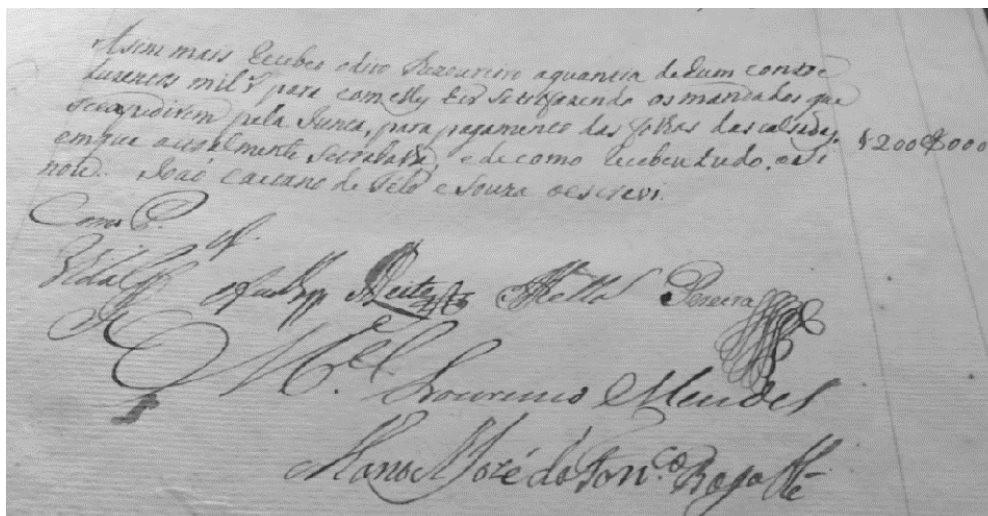 Asim mais Recebeo o dito Thezoureiro aquantia dehum conto e
duzentos mil r.s para com elles hir Satisfazendo os mandados que
se expedirem pela Junta, para pagamento das folhas das calsadas,
em que actualmente Se trabalha, e de como Recebeu tudo, asi
nou. João Caetano de e Souza o escrevi.
1$200$000
Vidal
Leite Mello Pereira
M.el Lourenço Mendes
Manoel José da Fon.ca